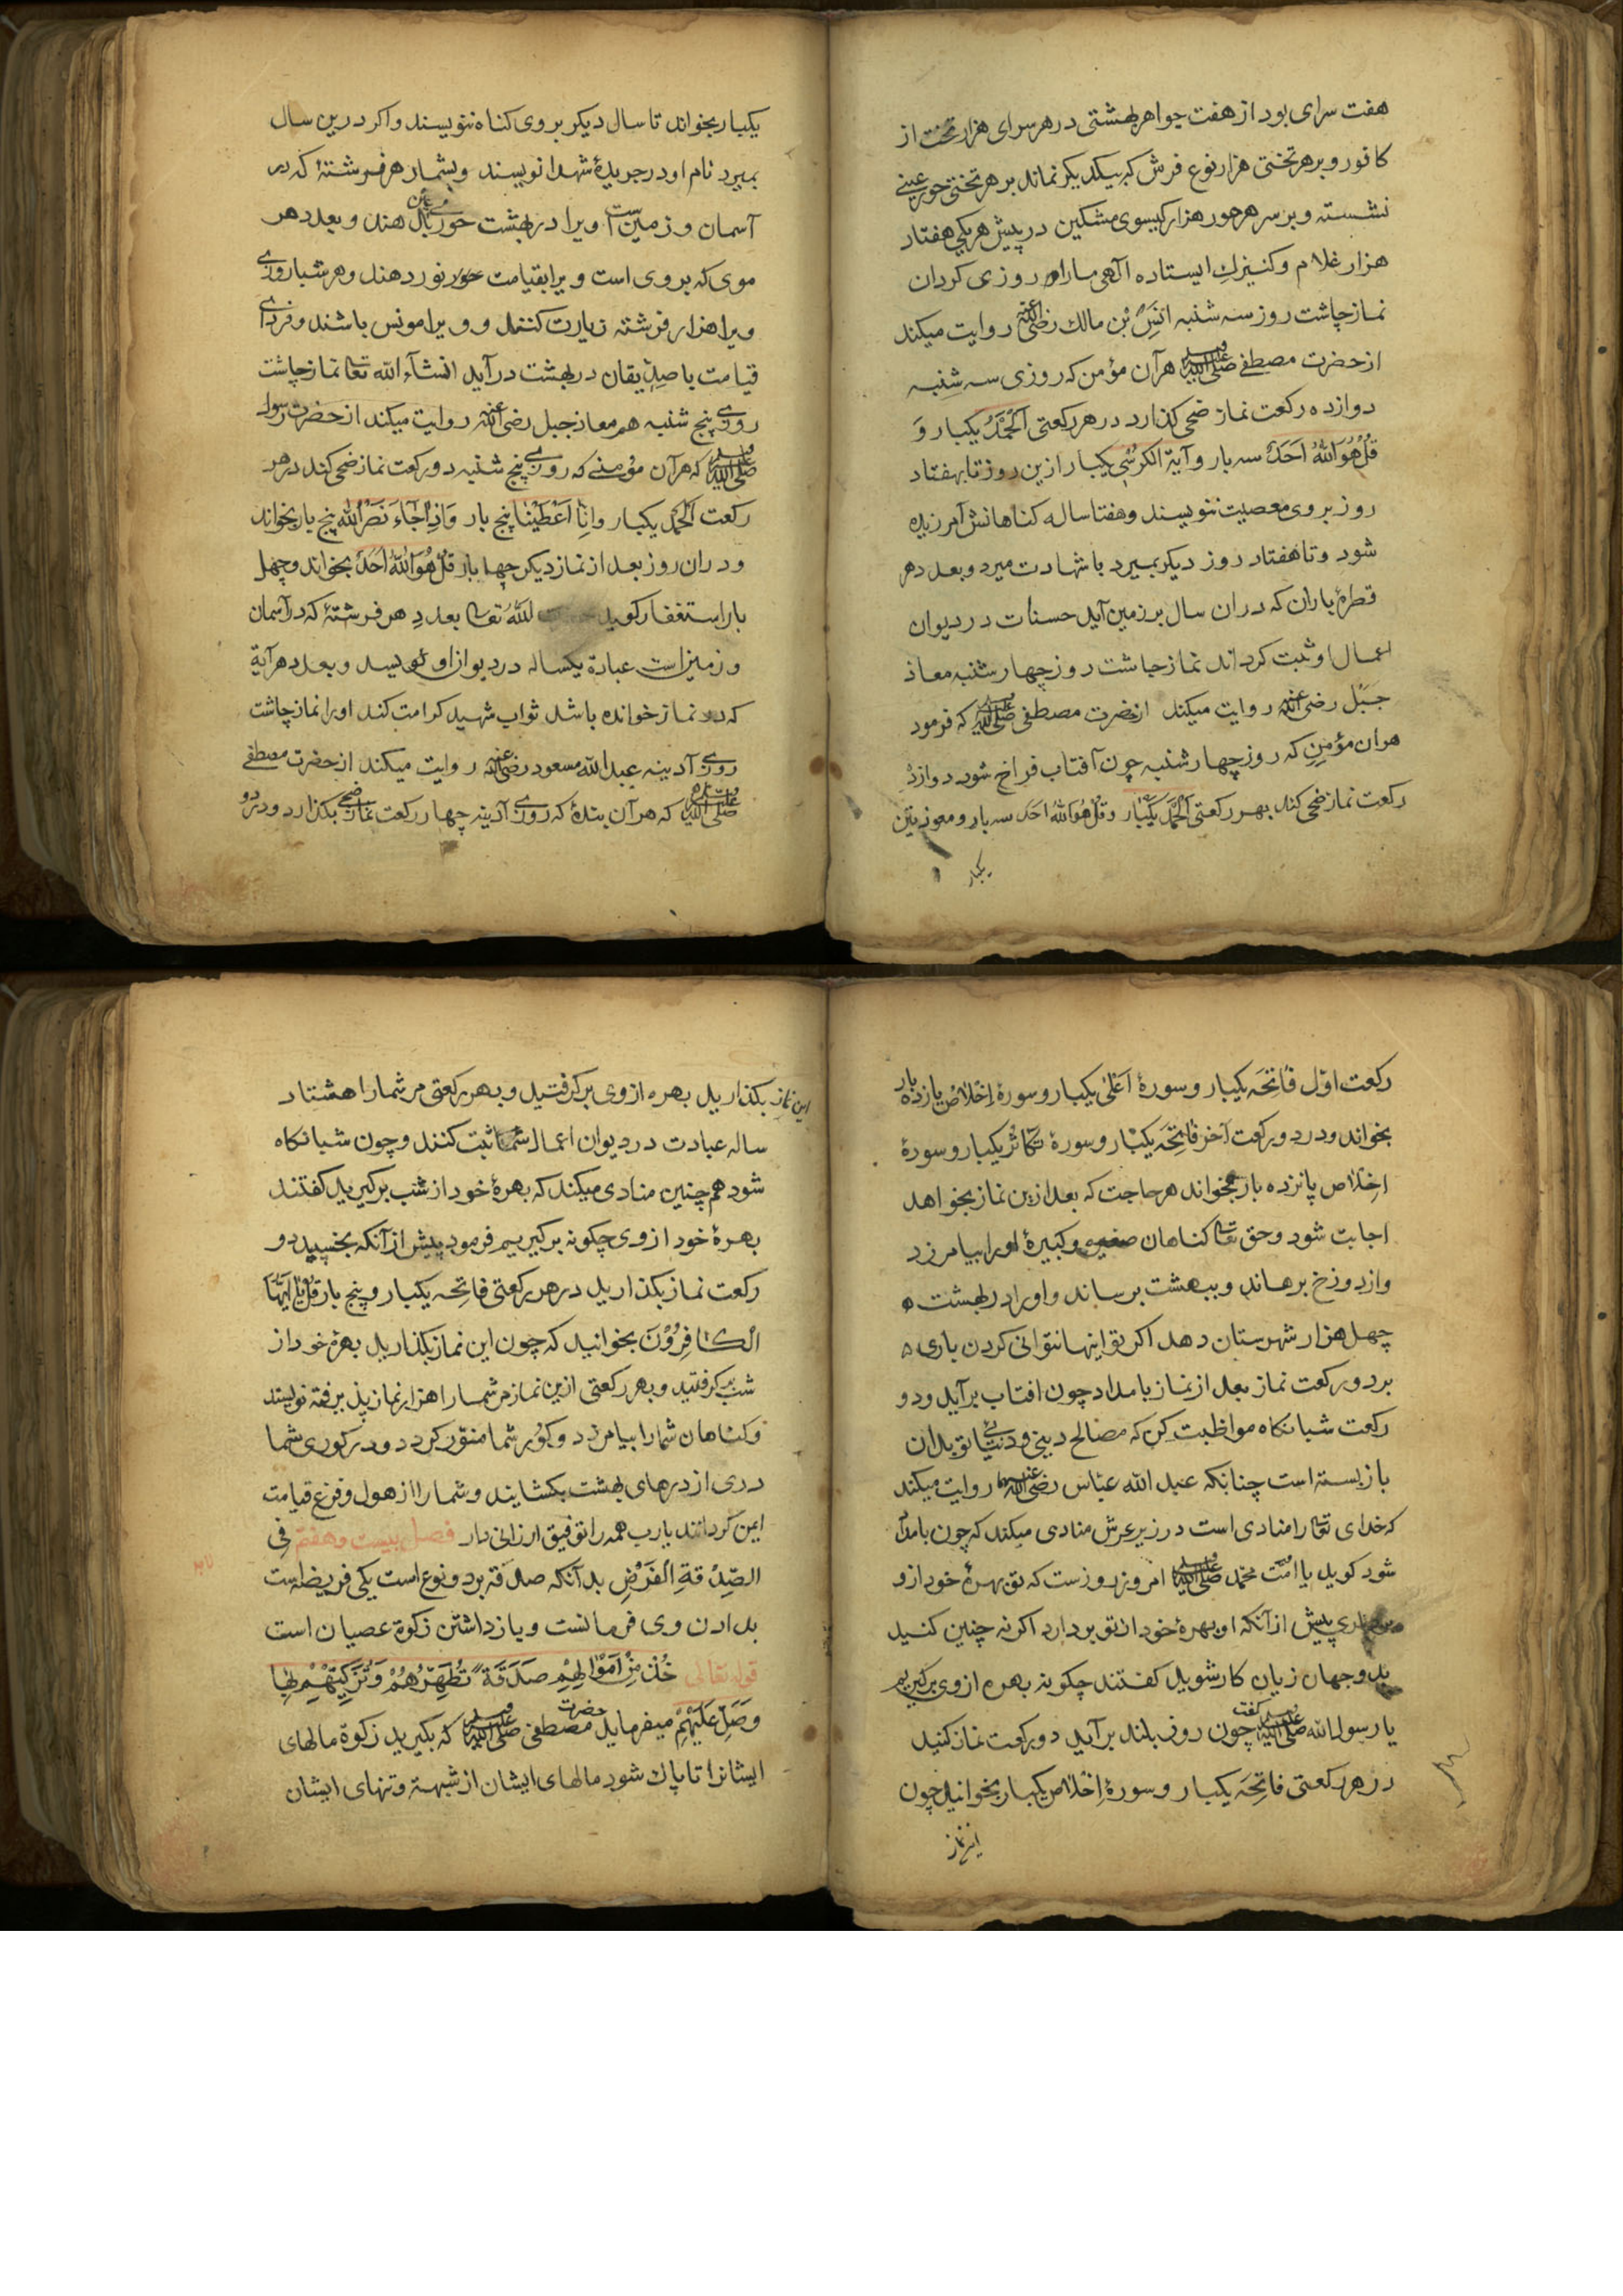 هفت سرای بود از هفت جواهر بهشتی در هر سرای هزار تخت از
کافور و بر هر تختی هزار نوع فرش که بیکدیکر نماند بر هر تختی حور عینی
نشسته و بر سر هر حور هزار کیسوی مشکین در پیش هر یکی هفتاد
هزار غلام و کنیزک ایستاده الهی مارا روزی کردان
نماز چاشت روز سه شنبه انس بن مالک رضی الله عنه روایت میکند
از حضرت مصطفی صلی الله علیه وسلم هر آن مؤمن که روزی سه شنبه
دوازده رکعت نماز ضحی کذارد در هر رکعتی اَلْحَمْدُ یکبار وَ
قُلْ هُوَ اللّٰهُ اَحَدٌ سه بار و آیة الکرسی یکبار ازین روز تا بهفتاد
روز بر وی معصیت ننویسند و هفتاد ساله کناهانش آمرزیده
شود و تا هفتاد روز دیکر بمیرد با شهادت میرد و بعدد هر
قطرهٔ باران که دران سال بر زمین آید حسنات در دیوان
اعمال او ثبت کرداند نماز چاشت روز چهار شنبه معاذ
جبل رضی الله عنه روایت میکند از حضرت مصطفی صلی الله علیه وسلم که فرمود
هران مؤمن که روز چهار شنبه چون آفتاب فراخ شود دوازده
رکعت نماز ضحی کند بهر رکعتی اَلْحَمْدُ یکبار و قُلْ هُوَ اللّٰهُ اَحَد سه بار و معوذتین
یکبار
یکبار بخواند تا سال دیکر بر وی کناه ننویسند و اکر درین سال
بمیرد نام او در جریدهٔ شهدا نویسند و بشمار هر فرشتهٔ که در
آسمان و زمین است او یرا در بهشت حور دهند و بعدد هر
موی که بر وی است و یرا بقیامت نور دهند و هر شباروزی
ویرا هزار فرشته زیارت کنند و ویرا مونس باشند و فردای
قیامت با صدیقان در بهشت در آید انشآء الله تعا نماز چاشت
روزی پنج شنبه هم معاذ جبل رضی الله عنه روایت میکند از حضرت رسول
صلی الله علیه وسلم که هر آن مؤمنی که روزی پنج شنبه دو رکعت نماز ضحی کند در هر
رکعت اَلْحَمْدُ یکبار و اِنَّا اَعْطَیْنَا پنج بار وَاِذَا جَآءَ نَصْرُ اللّٰه پنج بار بخواند
و دران روز بعد از نماز دیکر چهل بار قُلْ هُوَ اللّٰهُ اَحَدٌ بخواند و چهل
بار استغفار کوید الله تعا بعدد هر فرشتهٔ که در آسمان
و زمین است عبادة یکساله در دیوان او نویسد و بعدد هر آیة
که در نماز خوانده باشد ثواب شهید کرامت کند اورا نماز چاشت
روزی آدینه عبد الله مسعود رضی الله عنه روایت میکند از حضرت مصطفی
صلی الله علیه وسلم که هر آن بندهٔ که روزی آدینه چهار رکعت نماز ضحی بکذارد و در دو
رکعت اوّل فاتحَه یکبار و سورهٔ اَعْلیٰ یکبار و سورهٔ اِخْلاص یازده بار
بخواند و در دو رکعت آخر فاتِحَه یکبار و سورهٔ تکاثُر یکبار و سورهٔ
اخلاص پانزده بار بخواند هر حاجت که بعد ازین نماز بخواهد
اجابت شود و حق تعا کناهان صغیره و کبیرهٔ اورا بیامرزد
و از دوزخ برهاند و ببهشت برساند و اورا در بهشت
چهل هزار شهرستان دهد اکر تو اینها نتوانی کردن باری
بر دو رکعت نماز بعد از نماز بامداد چون افتاب بر آید و دو
رکعت شبانکاه مواظبت کن که مصالح دینی و دنیایی تو بدان
باز بسته است چنانکه عبد الله عباس رضی الله عنهما روایت میکند
که خدای تعا را منادی است در زیر عرش منادی میکند که چون بامداد
شود کوید یا امّت محمّد صلی الله علیه وسلم امروز روزست که تو بهرهٔ خود ازو
برداری پیش از آنکه او بهرهٔ خود از تو بردارد اکر نه چنین کنید
بدو جهان زیان کار شوید کفتند چکونه بهره از وی برکیریم
یا رسول الله صلی الله علیه وسلم کفت چون روز بلند بر آید دو رکعت نماز کنید
در هر رکعتی فاتِحَه یکبار و سورهٔ اِخْلاص یکبار بخوانید چون
این نماز
این نماز بکذارید بهره از وی برکرفتید و بهر رکعتی مر شمارا هشتاد
ساله عبادت در دیوان اعمال شما ثبت کنند و چون شبانکاه
شود همچنین منادی میکند که بهرهٔ خود از شب برکیرید کفتند
بهرهٔ خود از وی چکونه برکیریم فرمود پیش از آنکه بخسپید دو
رکعت نماز بکذارید در هر رکعتی فاتِحه یکبار و پنج بار قُلْ یٰا اَیُّهَا
الْکٰافِرُوْنَ بخوانید که چون این نماز بکذارید بهرهٔ خود از
شب برکرفتید و بهر رکعتی ازین نماز مر شمارا هزار نماز پذیرفته نویسند
و کناهان شمارا بیامرزد و کور شما منوّر کردد و در کوری شما
دری از درهای بهشت بکشایند و شمارا از هول و فزع قیامت
ایمن کردانند یارب همه را توفیق ارزانی دار فصل بیست و هفتم فی
الصِّدْقةِ الفَرْضِ بدآنکه صدقه بر دو نوع است یکی فریضه است
بدادن وی فرمانست و باز داشتن زکوة عصیان است
قوله تعالی خُذْ مِنْ اَمْوٰالِهِمْ صَدَقَةً تُطَهِّرُهُمْ وَتُزَکِّیْهِمْ بِهٰا
وَصَلِّ عَلَیْهِمْ میفرماید حضرت مصطفی صلی الله علیه وسلم که بکیرید زکوة مالهای
ایشانرا تا پاک شود مالهای ایشان از شبهة و تنهای ایشان